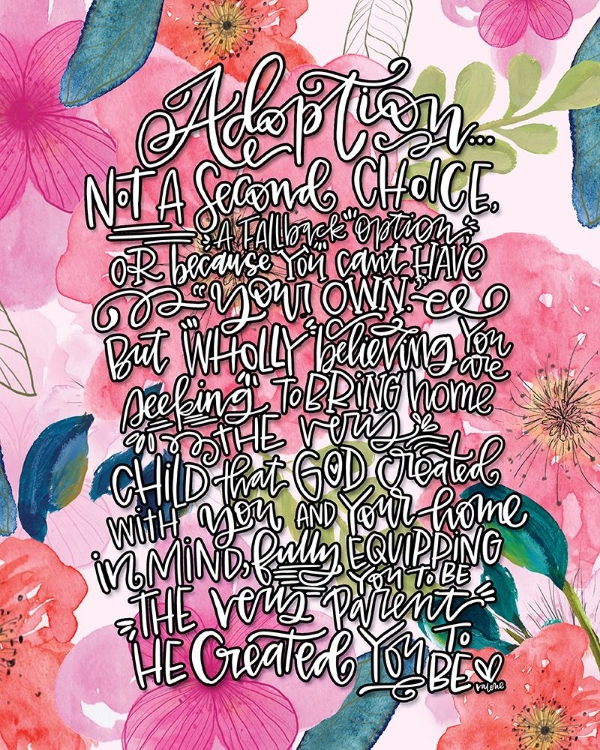 Adoption...
NOT A Second CHOICE,
A FAllback "option"
OR because You can't HAVE
"your OWN."
But "WHOLLY" believing You are
seeking TO BRING home
THE very
CHILD that GOD Created
WITH you AND Your home
in MIND, fully EQUIPPING
YOU TO BE
THE very parent
HE Created You TO BE
valerie